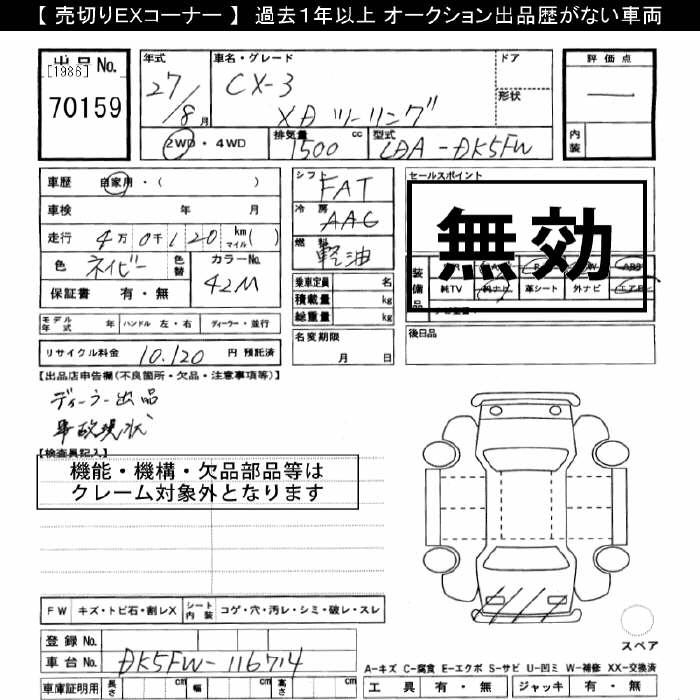 【 売切りEXコーナー 】 過去1年以上 オークション出品歴がない車両
出品No.
[1986]
70159
年式
27/8月
車名・グレード
CX-3
XD ツーリング
ドア
形状
評価点
一
内装
2WD・4WD
排気量
1500 cc
型式
LDA-DK5FW
車歴 自家用・( )
車検 年 月
走行 4万0千120 km マイル( )
色 ネイビー 色替 カラーNo. 42M
保証書 有・無
シフト FAT
冷房 AAC
燃料 軽油
乗車定員 名
積載量 kg
総重量 kg
セールスポイント
無効
装備品
純TV 純ナビ 革シート 外ナビ エアB
モデル年式 年 ハンドル 左・右 ディーラー・並行
リサイクル料金 10.120 円 預託済
名変期限
月 日
後日品
【出品店申告欄(不良箇所・欠品・注意事項等)】
ディーラー出品
事故現状
【検査員記入】
機能・機構・欠品部品等は
クレーム対象外となります
FW キズ・トビ石・割レX シート内装 コゲ・穴・汚レ・シミ・破レ・スレ
登録No.
車台No. DK5FW-116714
車庫証明用 長さ cm 幅 cm 高さ cm
スペア
A-キズ C-腐食 E-エクボ S-サビ U-凹ミ W-補修 XX-交換済
工具 有・無 ジャッキ 有・無